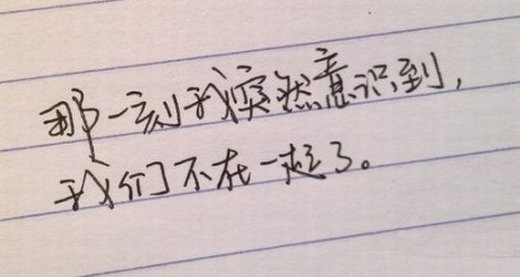 那一刻我突然意识到，
我们不在一起了。